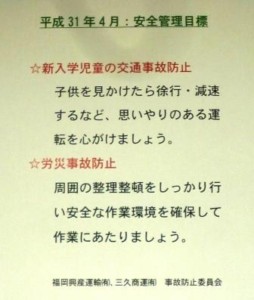 平成31年4月：安全管理目標
☆新入学児童の交通事故防止
子供を見かけたら徐行・減速
するなど、思いやりのある運
転を心がけましょう。
☆労災事故防止
周囲の整理整頓をしっかり行
い安全な作業環境を確保して
作業にあたりましょう。
福岡興産運輸㈲、三久商運㈲　事故防止委員会